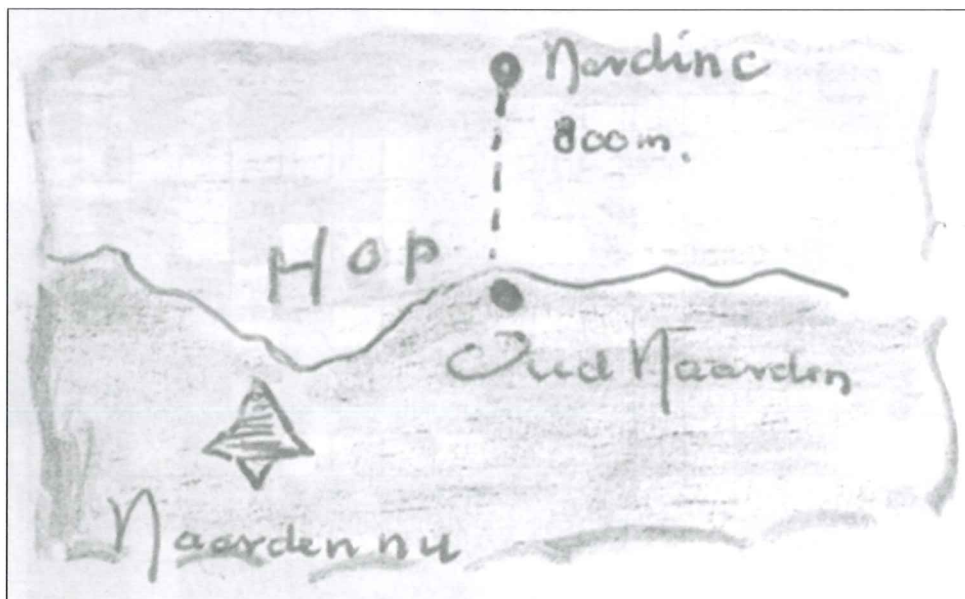 Nardinc
800m.
HOP
Oud Naarden
Naarden nu